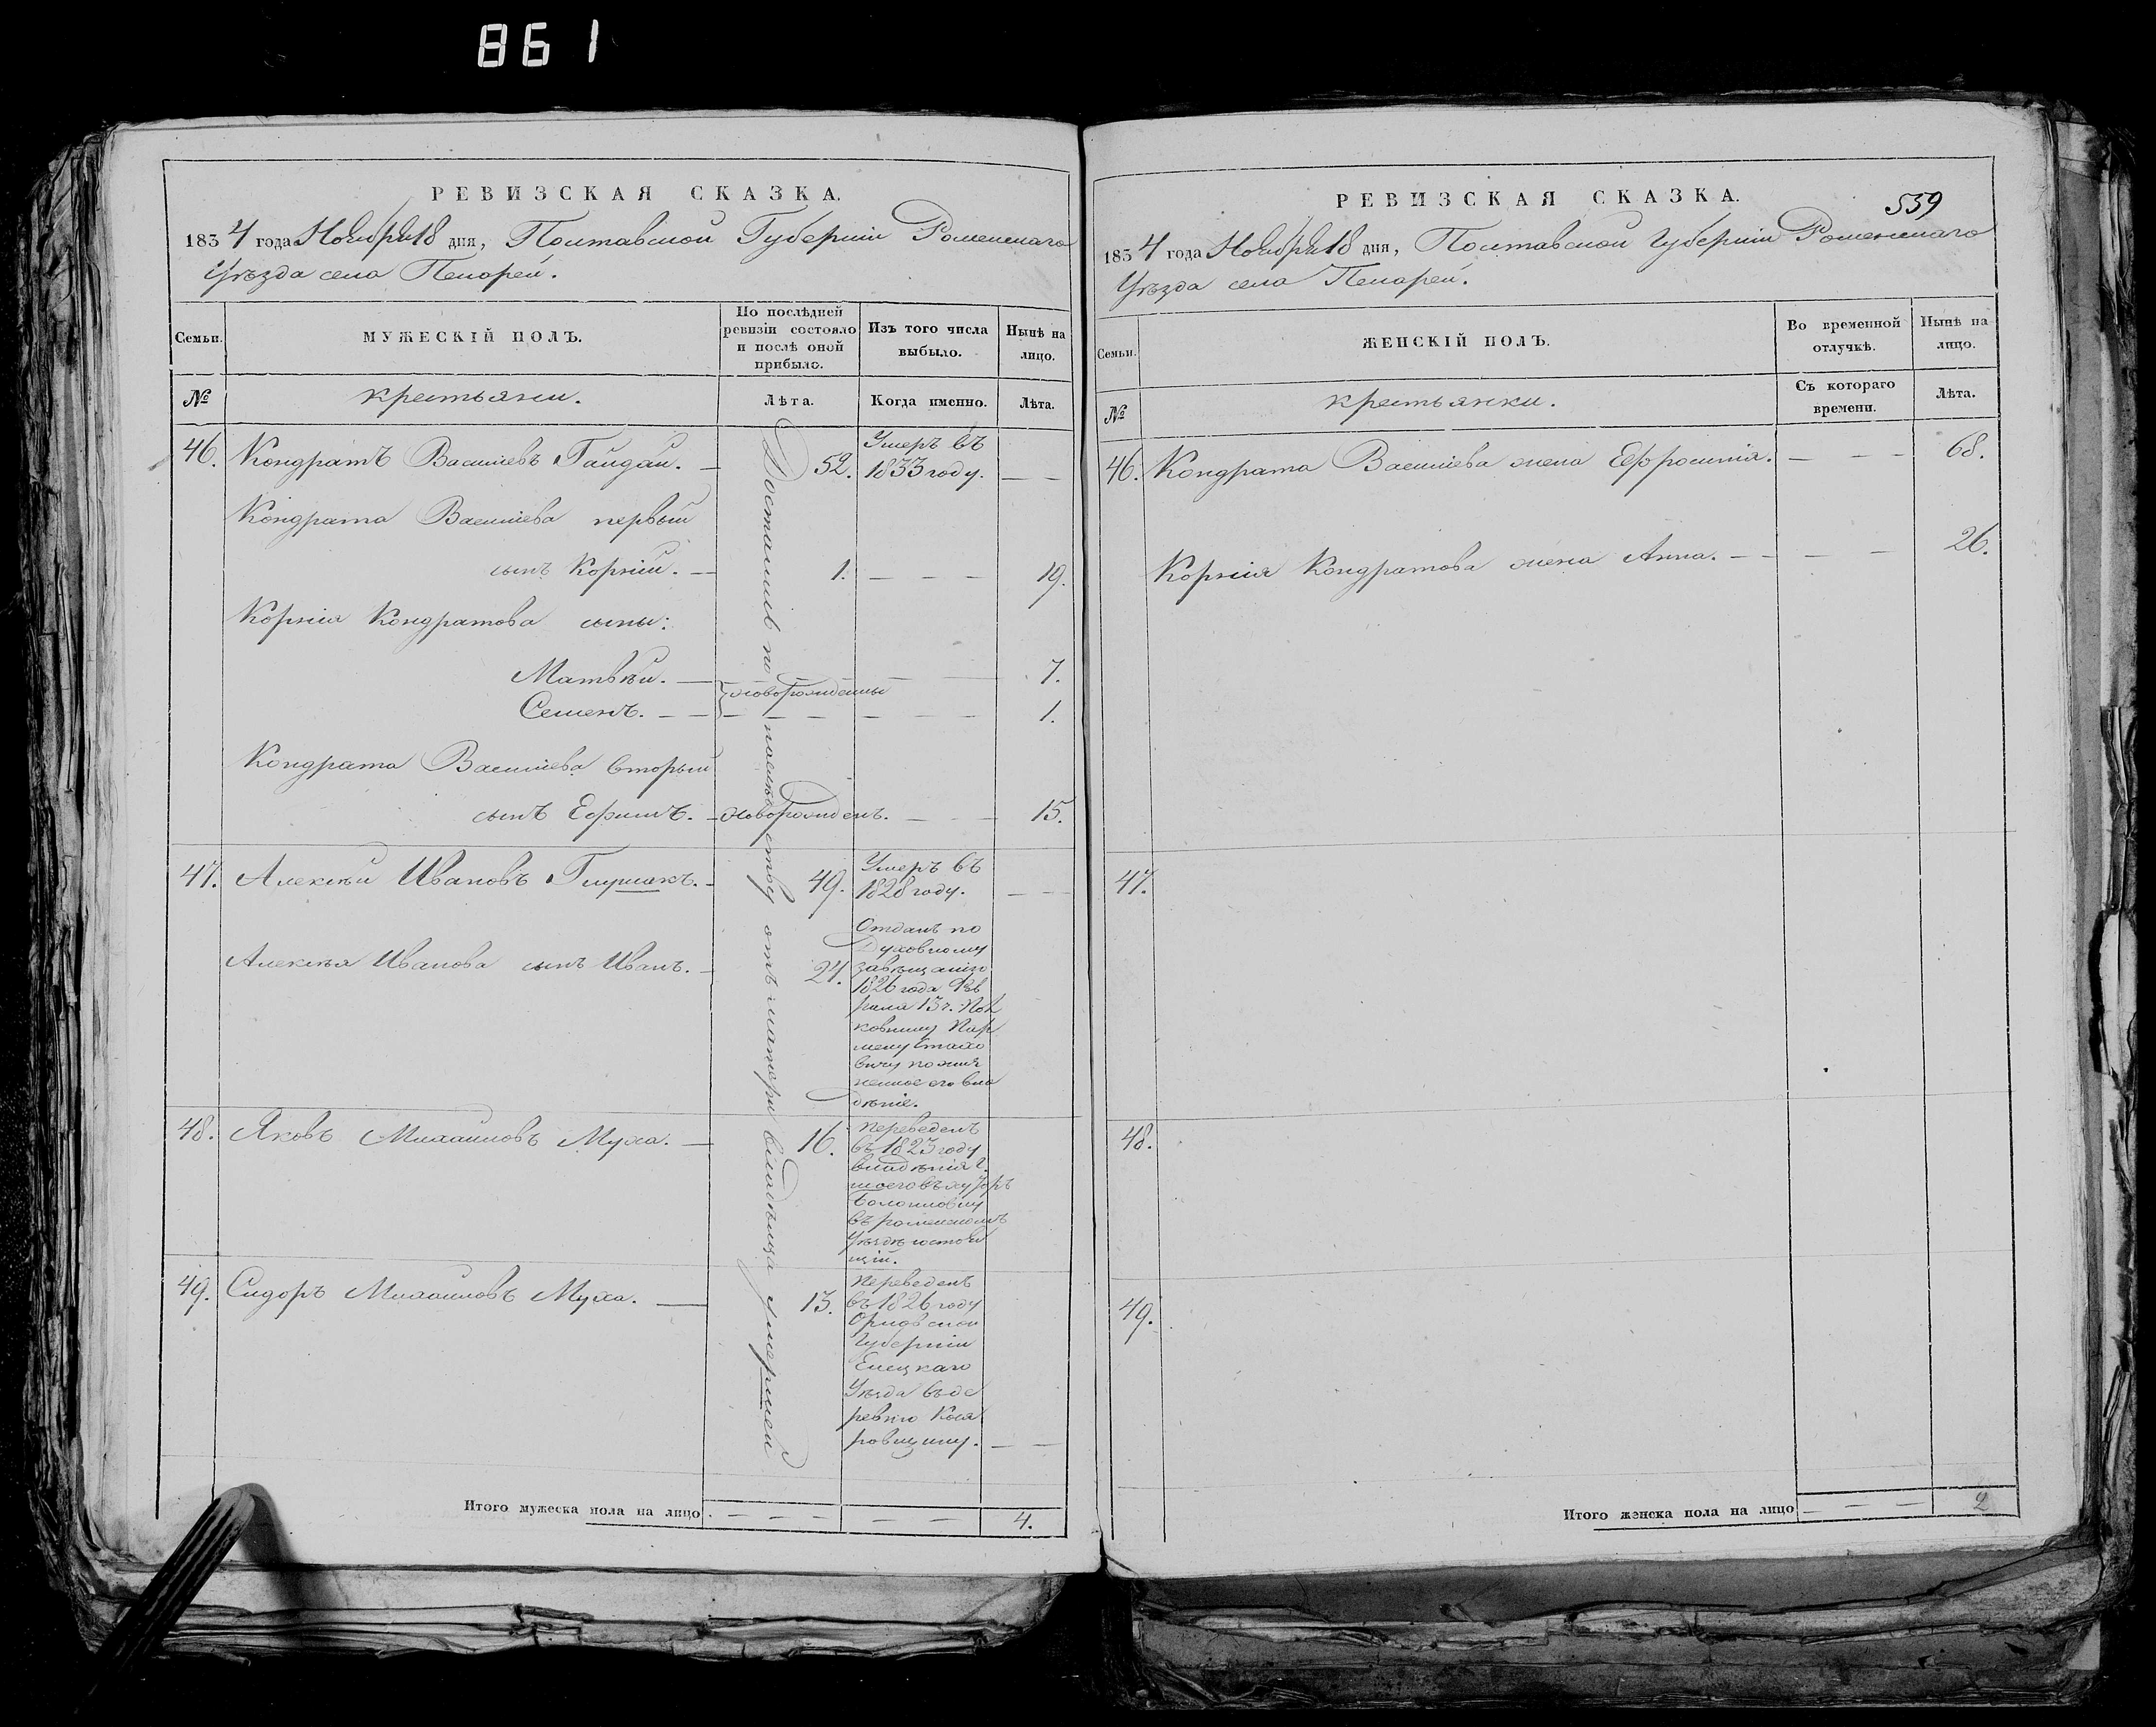 861
РЕВИЗСКАЯ СКАЗКА.
1834 года Ноября 18 дня, Полтавской Губерніи Роменскаго
Уѣзда села Пекарей.
Семьи.
МУЖЕСКІЙ ПОЛЪ.
По послѣдней
ревизіи состояло
и послѣ оной
прибыло.
Изъ того числа
выбыло.
Нынѣ на
лицо.
№
крестьяни.
Лѣта.
Когда именно.
Лѣта.
46. Кондратъ Васильевъ Гайдай. — 52. Умеръ въ
1833 году. — —
Кондрата Васильева первый
сынъ Корній. — 1. — — — 19.
Корнія Кондратова сыны:
Матвѣй. — — — — 7.
новорожденны
Семенъ. — — — — — 1.
Кондрата Васильева вторый
сынъ Ефимъ. — новорожденъ. — — 15.
47. Алексѣй Ивановъ Глушакъ. — 49. Умеръ въ
1828 году. — —
Алексѣя Иванова сынъ Иванъ. — 24.
Отданъ по
Духовному
завѣщанію
1826 года Фев
раля 13 ч. Пол
ковнику Пар
мену Стахо
вичу пожизн
ненное его вла
дѣніе.
48. Яковъ Михайловъ Муха. — 16.
переведенъ
въ 1823 году
владѣнія
моего въ хуторъ
въ роменскомъ
Уѣздѣ состоя
щій.
49. Сидоръ Михайловъ Муха. — 13.
переведенъ
въ 1826 году
Орловской
Губерніи
Елецкаго
Уѣзда въ де
ревню
Достались по наслѣдству отъ матери владѣльца умершей
Итого мужеска пола на лицо — — — — — 4.
РЕВИЗСКАЯ СКАЗКА.
539
1834 года Ноября 18 дня, Полтавской Губерніи Роменскаго
Уѣзда села Пекарей.
Семьи.
ЖЕНСКІЙ ПОЛЪ.
Во временной
отлучкѣ.
Нынѣ на
лицо.
№
крестьянки.
Съ котораго
времени.
Лѣта.
46. Кондрата Васильева жена Ефросинія. — — — 68.
Корнія Кондратова жена Анна. — — — — 26.
47.
48.
49.
Итого женска пола на лицо — — — 2